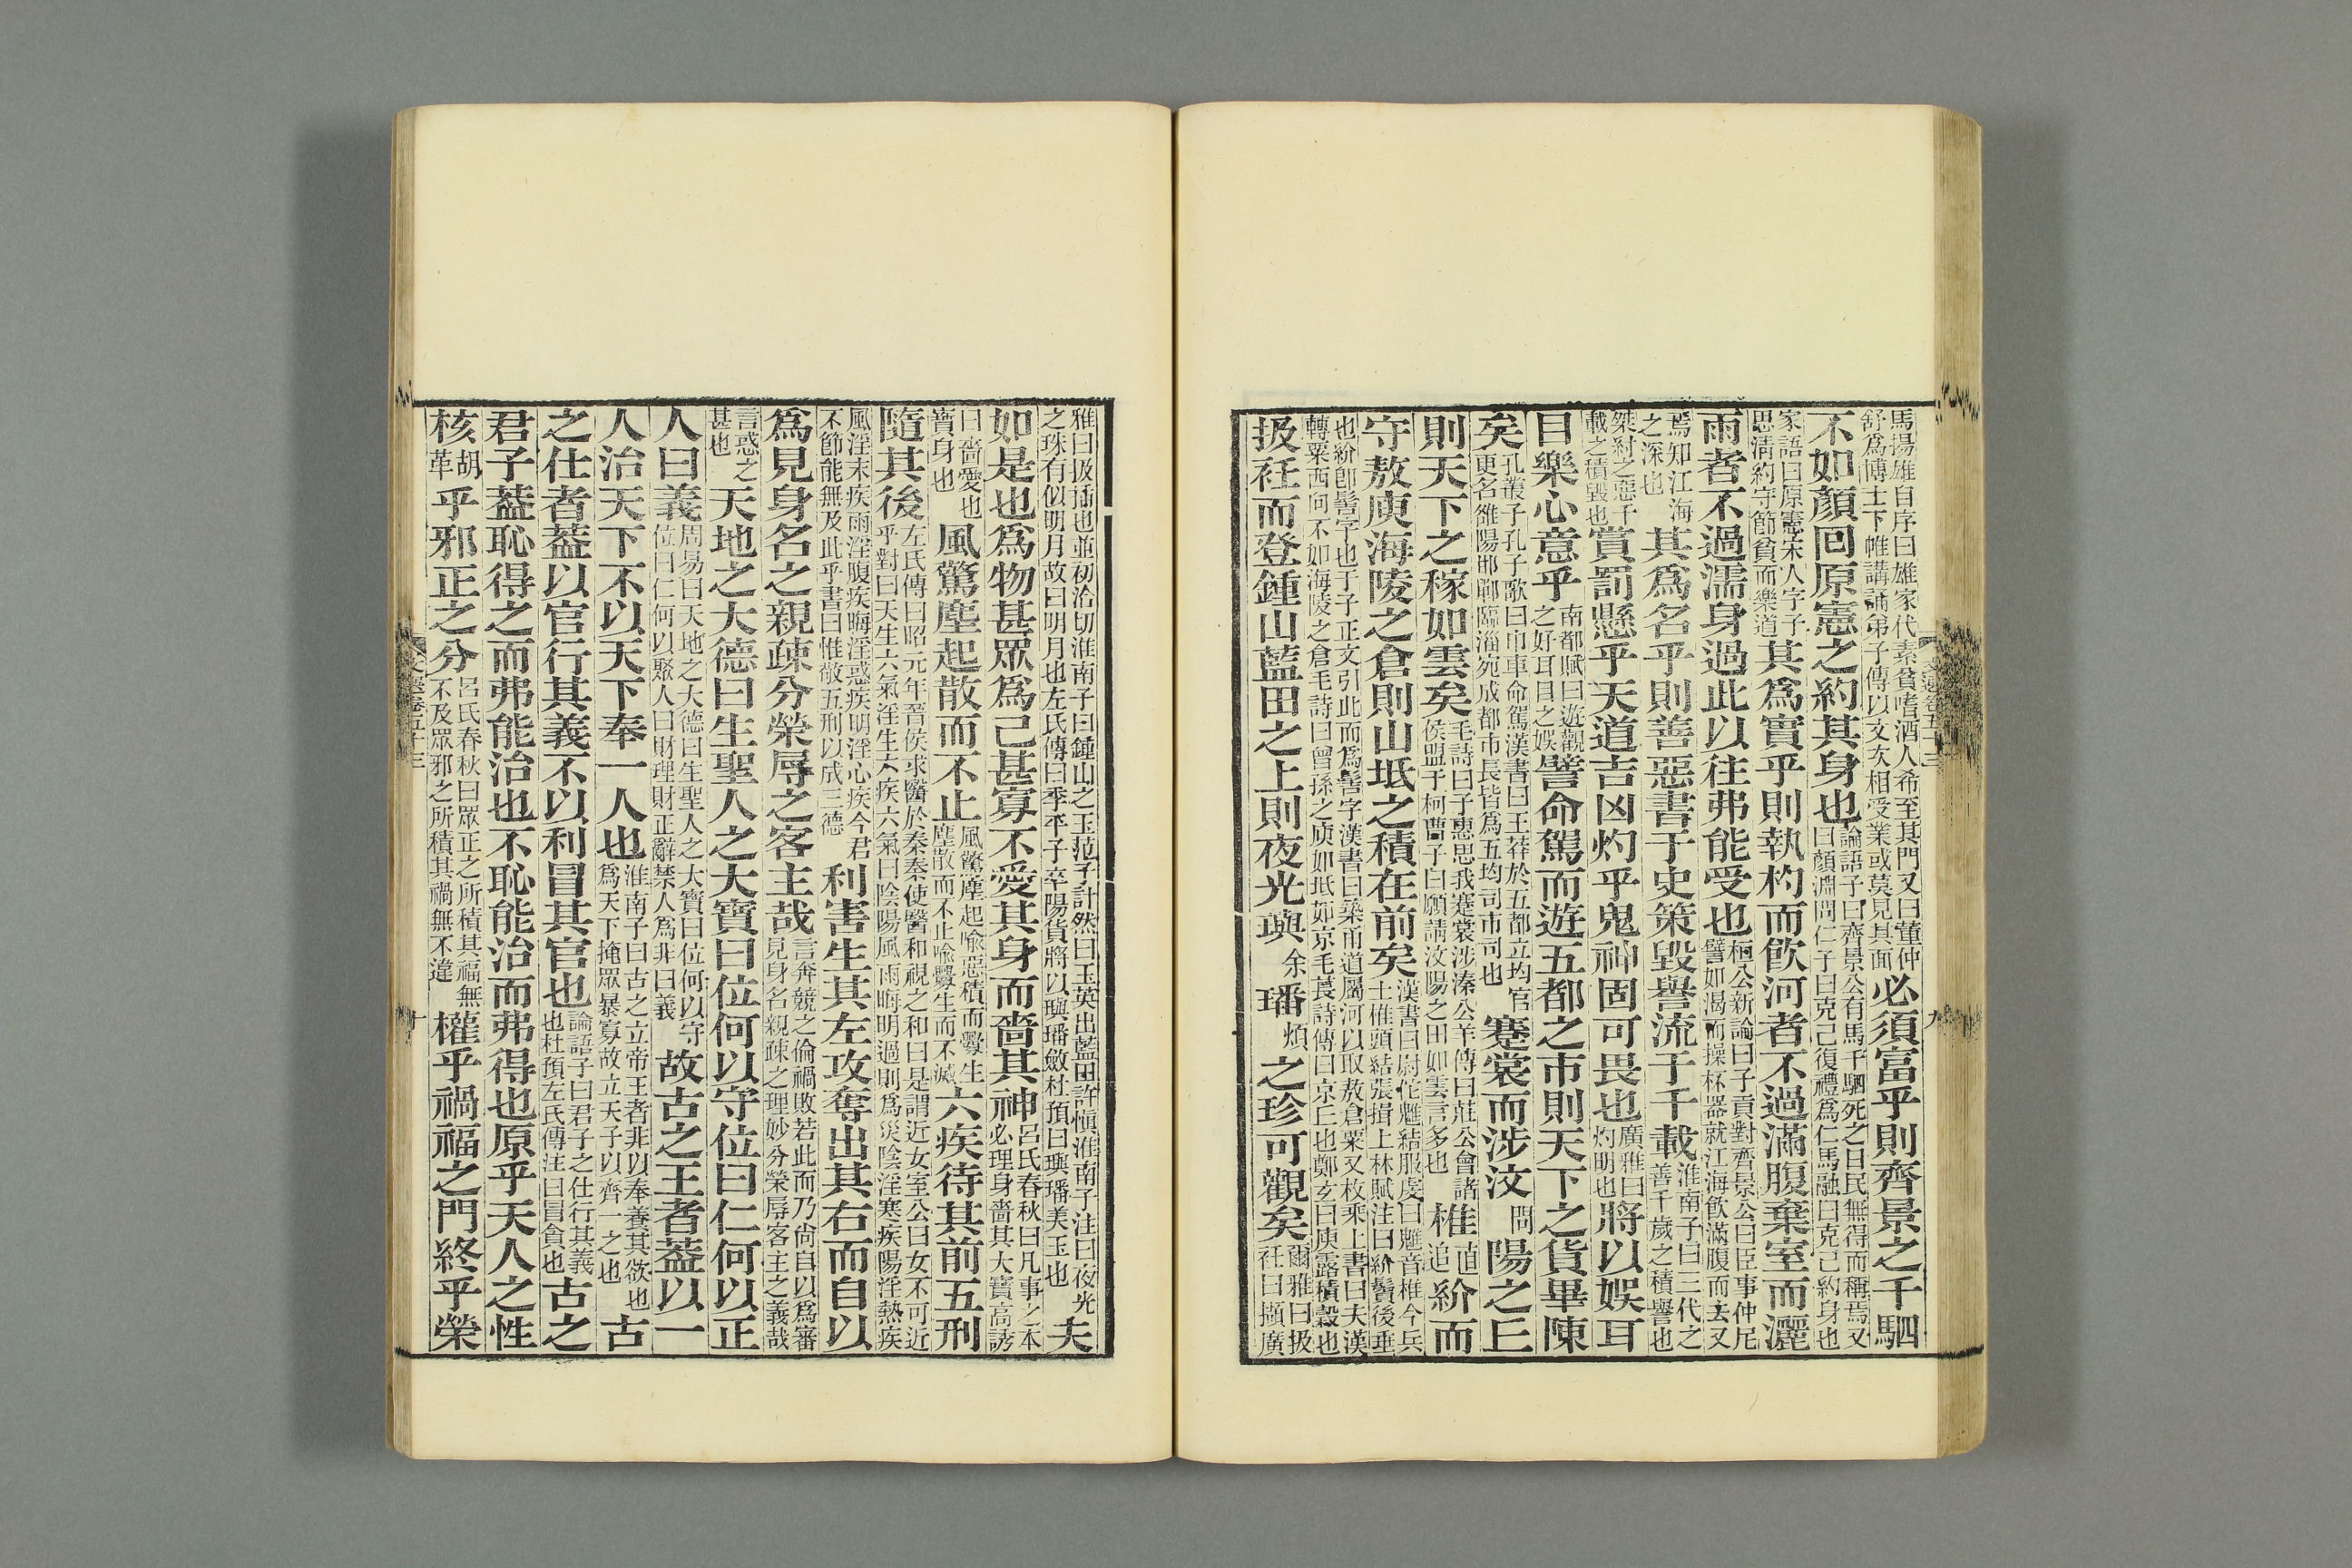 馬揚雄自序曰雄家代素貧嗜酒人希至其門又曰董仲
舒爲博士下帷講誦弟子傳以文次相受業或莫見其面
必須富乎則齊景之千駟
不如顏回原憲之約其身也
論語子曰齊景公有馬千駟死之日民無得而稱焉又
曰顏淵問仁子曰克己復禮爲仁馬融曰克己約身也
家語曰原憲宋人字子
思清約守節貧而樂道
其爲實乎則執杓而飲河者不過滿腹棄室而灑
雨者不過濡身過此以往弗能受也
桓公新論曰子貢對齊景公曰臣事仲尼
譬如渴而操杯器就江海飲滿腹而去又
焉知江海
之深也
其爲名乎則善惡書于史策毀譽流于千載
淮南子曰三代之
善千歲之積譽也
桀紂之惡千
載之積毀也
賞罰懸乎天道吉凶灼乎鬼神固可畏也
廣雅曰
灼明也
將以娛耳
目樂心意乎
南都賦曰遊觀
之好耳目之娛
譬命駕而遊五都之市則天下之貨畢陳
矣
孔叢子孔子歌曰巾車命駕漢書曰王莽於五都立均官
更名雒陽邯鄲臨淄宛成都市長皆爲五均司市司也
褰裳而涉汶
問
陽之丘
則天下之稼如雲矣
毛詩曰子惠思我褰裳涉溱公羊傳曰莊公會諸
侯盟于柯曹子曰願請汶陽之田如雲言多也
椎
直
追
紒而
守敖庾海陵之倉則山坻之積在前矣
漢書曰尉佗魋結服虔曰魋音椎今兵
士椎頭結張揖上林賦注曰紒鬢後垂
也紒卽髻字也于子正文引此而爲髻字漢書曰築甬道屬河以取敖倉粟又枚乘上書曰夫漢
轉粟西向不如海陵之倉毛詩曰曾孫之庾如坻如京毛萇詩傳曰京丘也鄭玄曰庾露積穀也
扱衽而登鍾山藍田之上則夜光璵
余
璠
煩
之珍可觀矣
爾雅曰扱
衽曰擷廣
雅曰扱插也並初洽切淮南子曰鍾山之玉范子計然曰玉英出藍田許愼淮南子注曰夜光
之珠有似明月故曰明月也左氏傳曰季平子卒陽貨將以璵璠斂杜預曰璵璠美玉也
夫
如是也爲物甚眾爲己甚寡不愛其身而嗇其神
呂氏春秋曰凡事之本
必理身嗇其大寶高誘
曰嗇愛也
寶身也
風驚塵起散而不止
風驚塵起喻惡積而釁生
塵散而不止喻釁生而不滅
六疾待其前五刑
隨其後
左氏傳曰昭元年晉侯求醫於秦秦使醫和視之和曰是謂近女室公曰女不可近
乎對曰天生六氣淫生六疾六氣曰陰陽風雨晦明過則爲災陰淫寒疾陽淫熱疾
風淫末疾雨淫腹疾晦淫惑疾明淫心疾今君
不節能無及此乎書曰惟敬五刑以成三德
利害生其左攻奪出其右而自以
爲見身名之親疎分榮辱之客主哉
言奔競之倫禍敗若此而乃尙自以爲審
見身名親疎之理妙分榮辱客主之義哉
言惑之
甚也
天地之大德曰生聖人之大寶曰位何以守位曰仁何以正
人曰義
周易曰天地之大德曰生聖人之大寶曰位何以守
位曰仁何以聚人曰財理財正辭禁人爲非曰義
故古之王者葢以一
人治天下不以天下奉一人也
淮南子曰古之立帝王者非以奉養其欲也
爲天下掩眾暴寡故立天子以齊一之也
古
之仕者葢以官行其義不以利冒其官也
論語子曰君子之仕行其義
也杜預左氏傳注曰冒貪也
古之
君子葢恥得之而弗能治也不恥能治而弗得也原乎天人之性
核
胡
革
乎邪正之分
呂氏春秋曰眾正之所積其福無
不及眾邪之所積其禍無不違
權乎禍福之門終乎榮